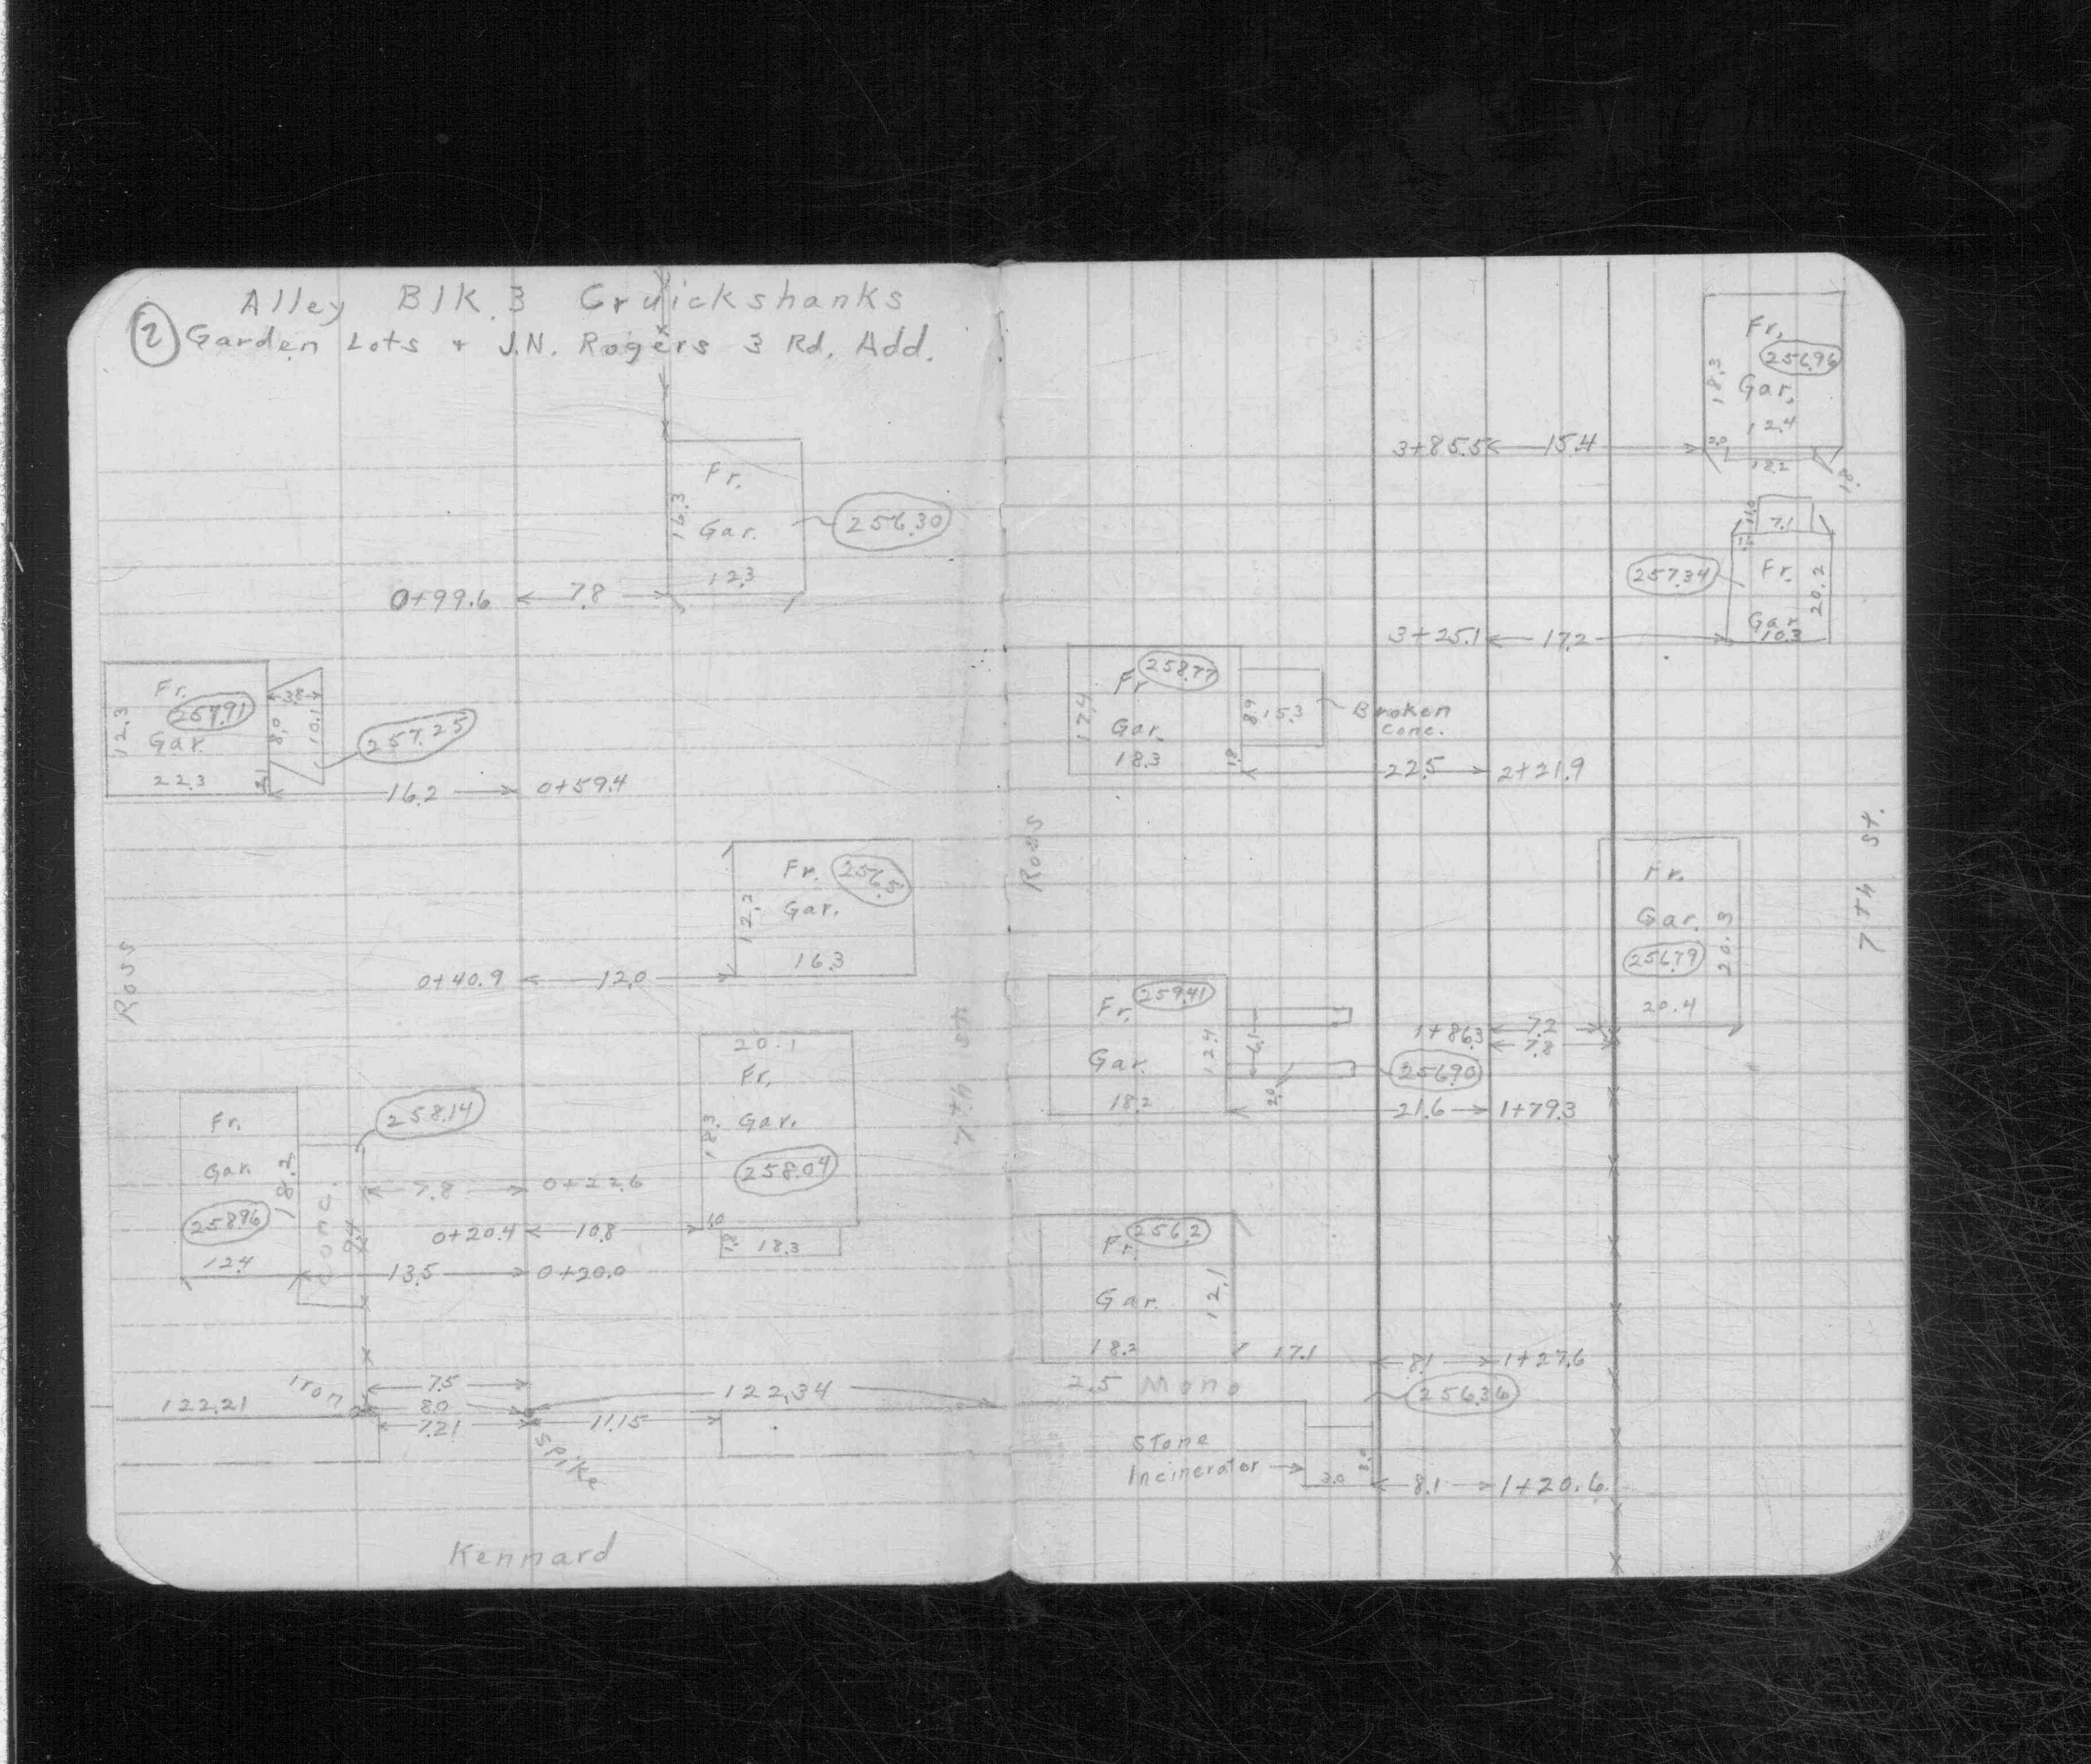 Alley Blk. 3 Cruickshanks
② Garden Lots + J.N. Rogers 3 Rd. Add.
Fr.
16.3
Gar.
256.30
12.3
0+99.6 7.8
Fr.
257.91
12.3
Gar.
22.3
3.8
8.0
10.1
2.1
257.25
16.2 0+59.4
Fr. 256.5
12.2
Gar.
16.3
0+40.9 12.0
Ross
7th St
20.1
Fr.
18.3
Gar.
258.04
10.8
1.0
18.3
Fr.
Gar.
18.2
258.96
12.4
Conc.
9.4
258.14
7.8 0+22.6
0+20.4
13.5 0+20.0
Iron
7.5
122.21
8.0
122.34
7.21
11.15
Spike
Kennard
Fr.
256.96
18.3
Gar.
12.4
3+85.5 15.4
2.0
18.2
18.
11.0
7.1
1.6
257.34
Fr.
20.2
Gar.
10.3
3+25.1 17.2
258.77
Fr
12.4
Gar.
18.3
8.9
15.3
Broken
Conc.
1.8
22.5 2+21.9
Ross
7th St.
Fr.
Gar.
20.3
256.79
20.4
1+86.3 7.2
7.8
Fr. 259.41
Gar.
12.4
18.2
6.1
2.0
256.90
21.6 1+79.3
Fr. 256.2
Gar.
12.1
18.2
17.1
8.1 1+27.6
2.5 Mono
256.36
Stone
Incinerator
3.0
3.0
8.1 1+20.6